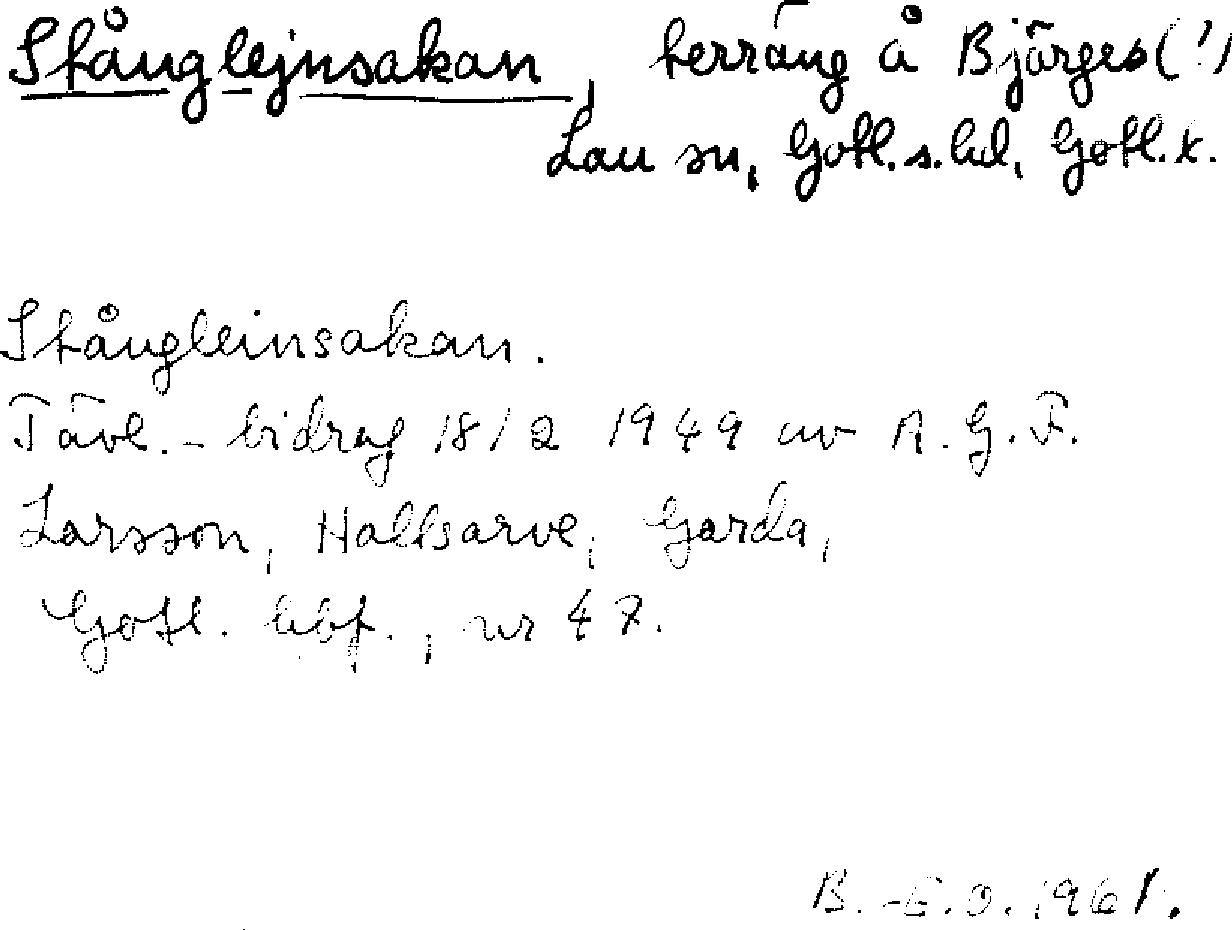 Stånglejnsakan, terräng å Bjärges(!)
Lau sn, Gotl.s.hd, Gotl.k.
Stångleinsakan.
Tävl.-bidrag 18/2 1949 av A.G.F.
Larsson, Hallsarve, Garda,
Gotl. hbf., nr 47.
B.-E.O. 1961.